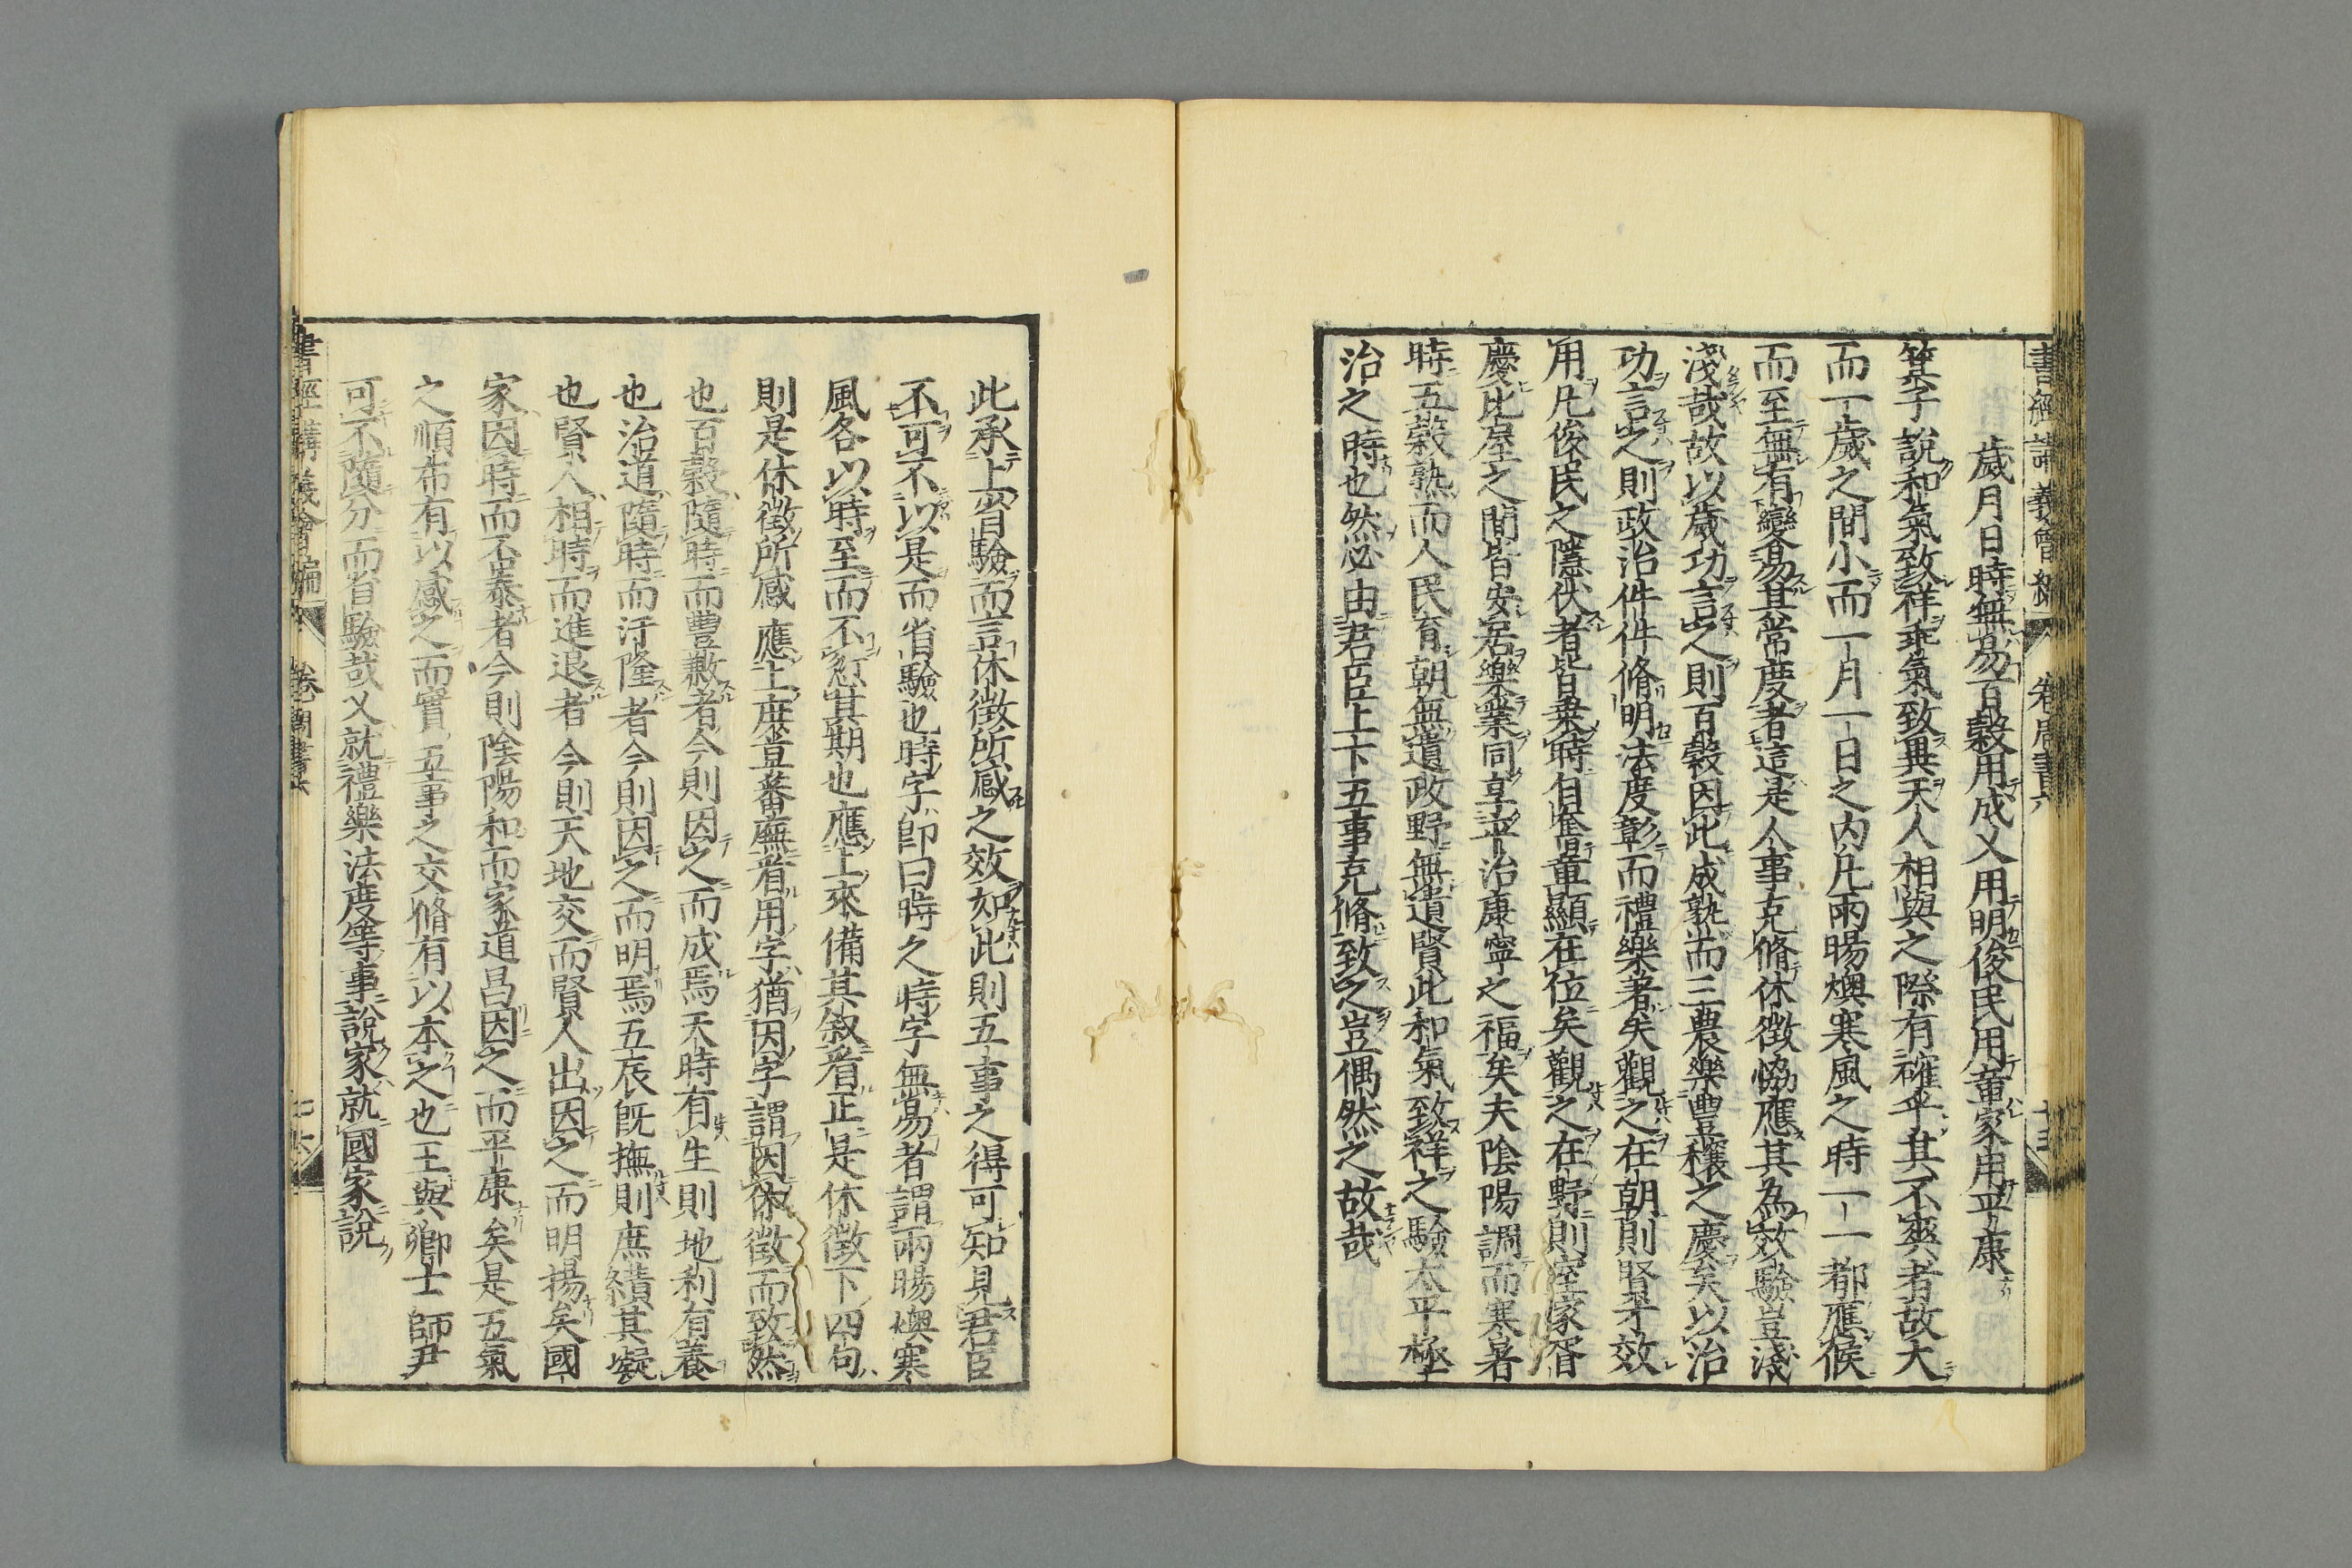 書經講義會編 卷 周書六
歲月日時無易百穀用成乂用明俊民用章家用平康
箕子說和氣致祥乖氣致異天人相與之際有確乎其不爽者故大
而一歲之間小而一月一日之內凡雨暘燠寒風之時一一都應候
而至無有變易其常度者這是人事克脩休徵恊應其為效驗豈淺
淺哉故以歲功言之則百穀因此成熟而三農樂豐穰之慶矣以治
功言之則政治件件脩明法度彰而禮樂著矣觀之在朝則賢才效
用凡俊民之隱伏者皆乗時自奮章顯在位矣觀之在野則室家胥
慶比屋之間皆安居樂業同享平治康寧之福矣夫陰陽調而寒暑
時五穀熟而人民育朝無遺政野無遺賢此和氣致祥之驗太平極
治之時也然必由君臣上下五事克脩致之豈偶然之故哉
此承上省驗而言休徵所感之效如此則五事之得可知見君臣
不可不以是而省驗也時字卽曰時之時字無易者謂雨暘燠寒
風各以時至而不愆其期也應上來備其叙者正是休徵下四句
則是休徵所感應上庶草蕃廡者用字猶因字謂因休徵而致然
也百穀隨時而豐歉者今則因之而成焉天時有生則地利有養
也治道隨時而汙隆者今則因之而明焉五辰旣撫則庶績其凝
也賢人相時而進退者今則天地交而賢人出因之而明揚矣國
家因時而否泰者今則陰陽和而家道昌因之而平康矣是五氣
之順布有以感之而實五事之交脩有以本之也王與卿士師尹
可不隨分而省驗哉乂就禮樂法度等事說家就國家說
書經講義會編 卷 周書六